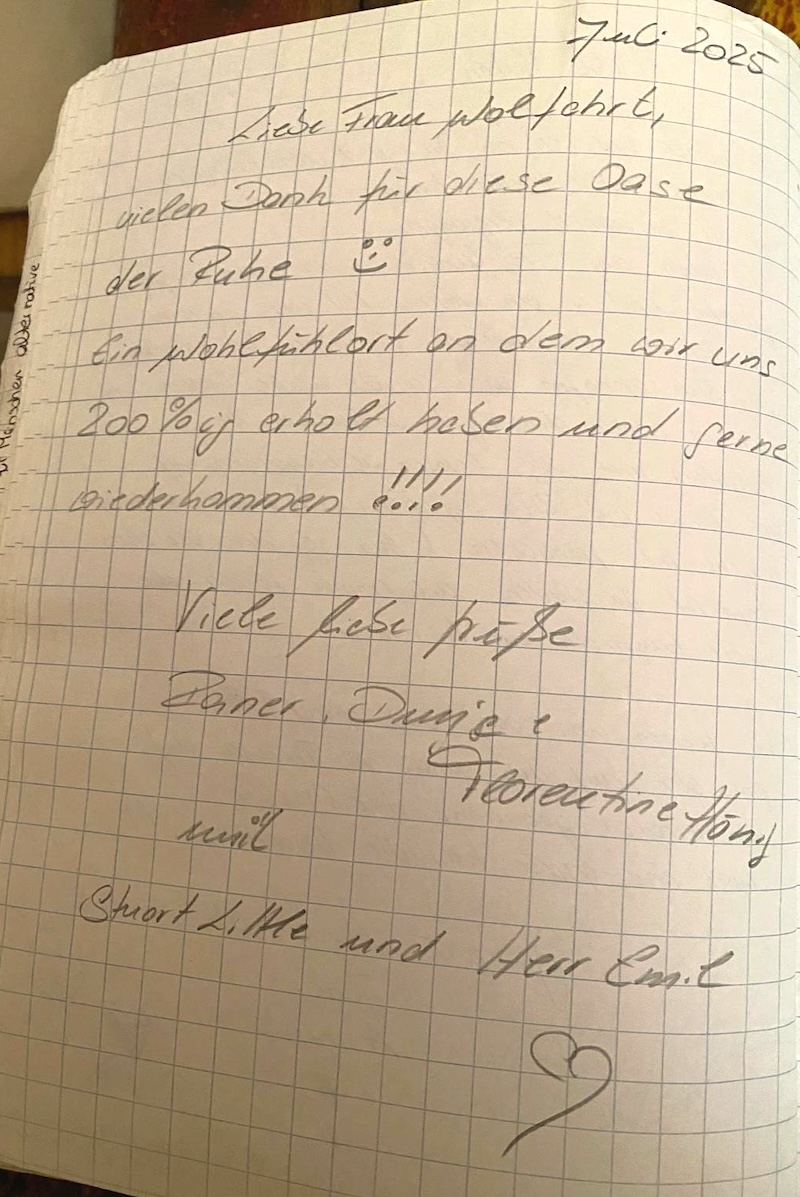 Juli 2025
Liebe Frau Wolfahrt,
vielen Dank für diese Oase
der Ruhe
Ein Wohlfühlort an dem wir uns
200%ig erholt haben und gerne
wiederkommen !!!!
Viele liebe Grüße
Rainer, Dunja &
Florentine Hönig
mit
Stuart Little und Herr Emil
Menschen alternative